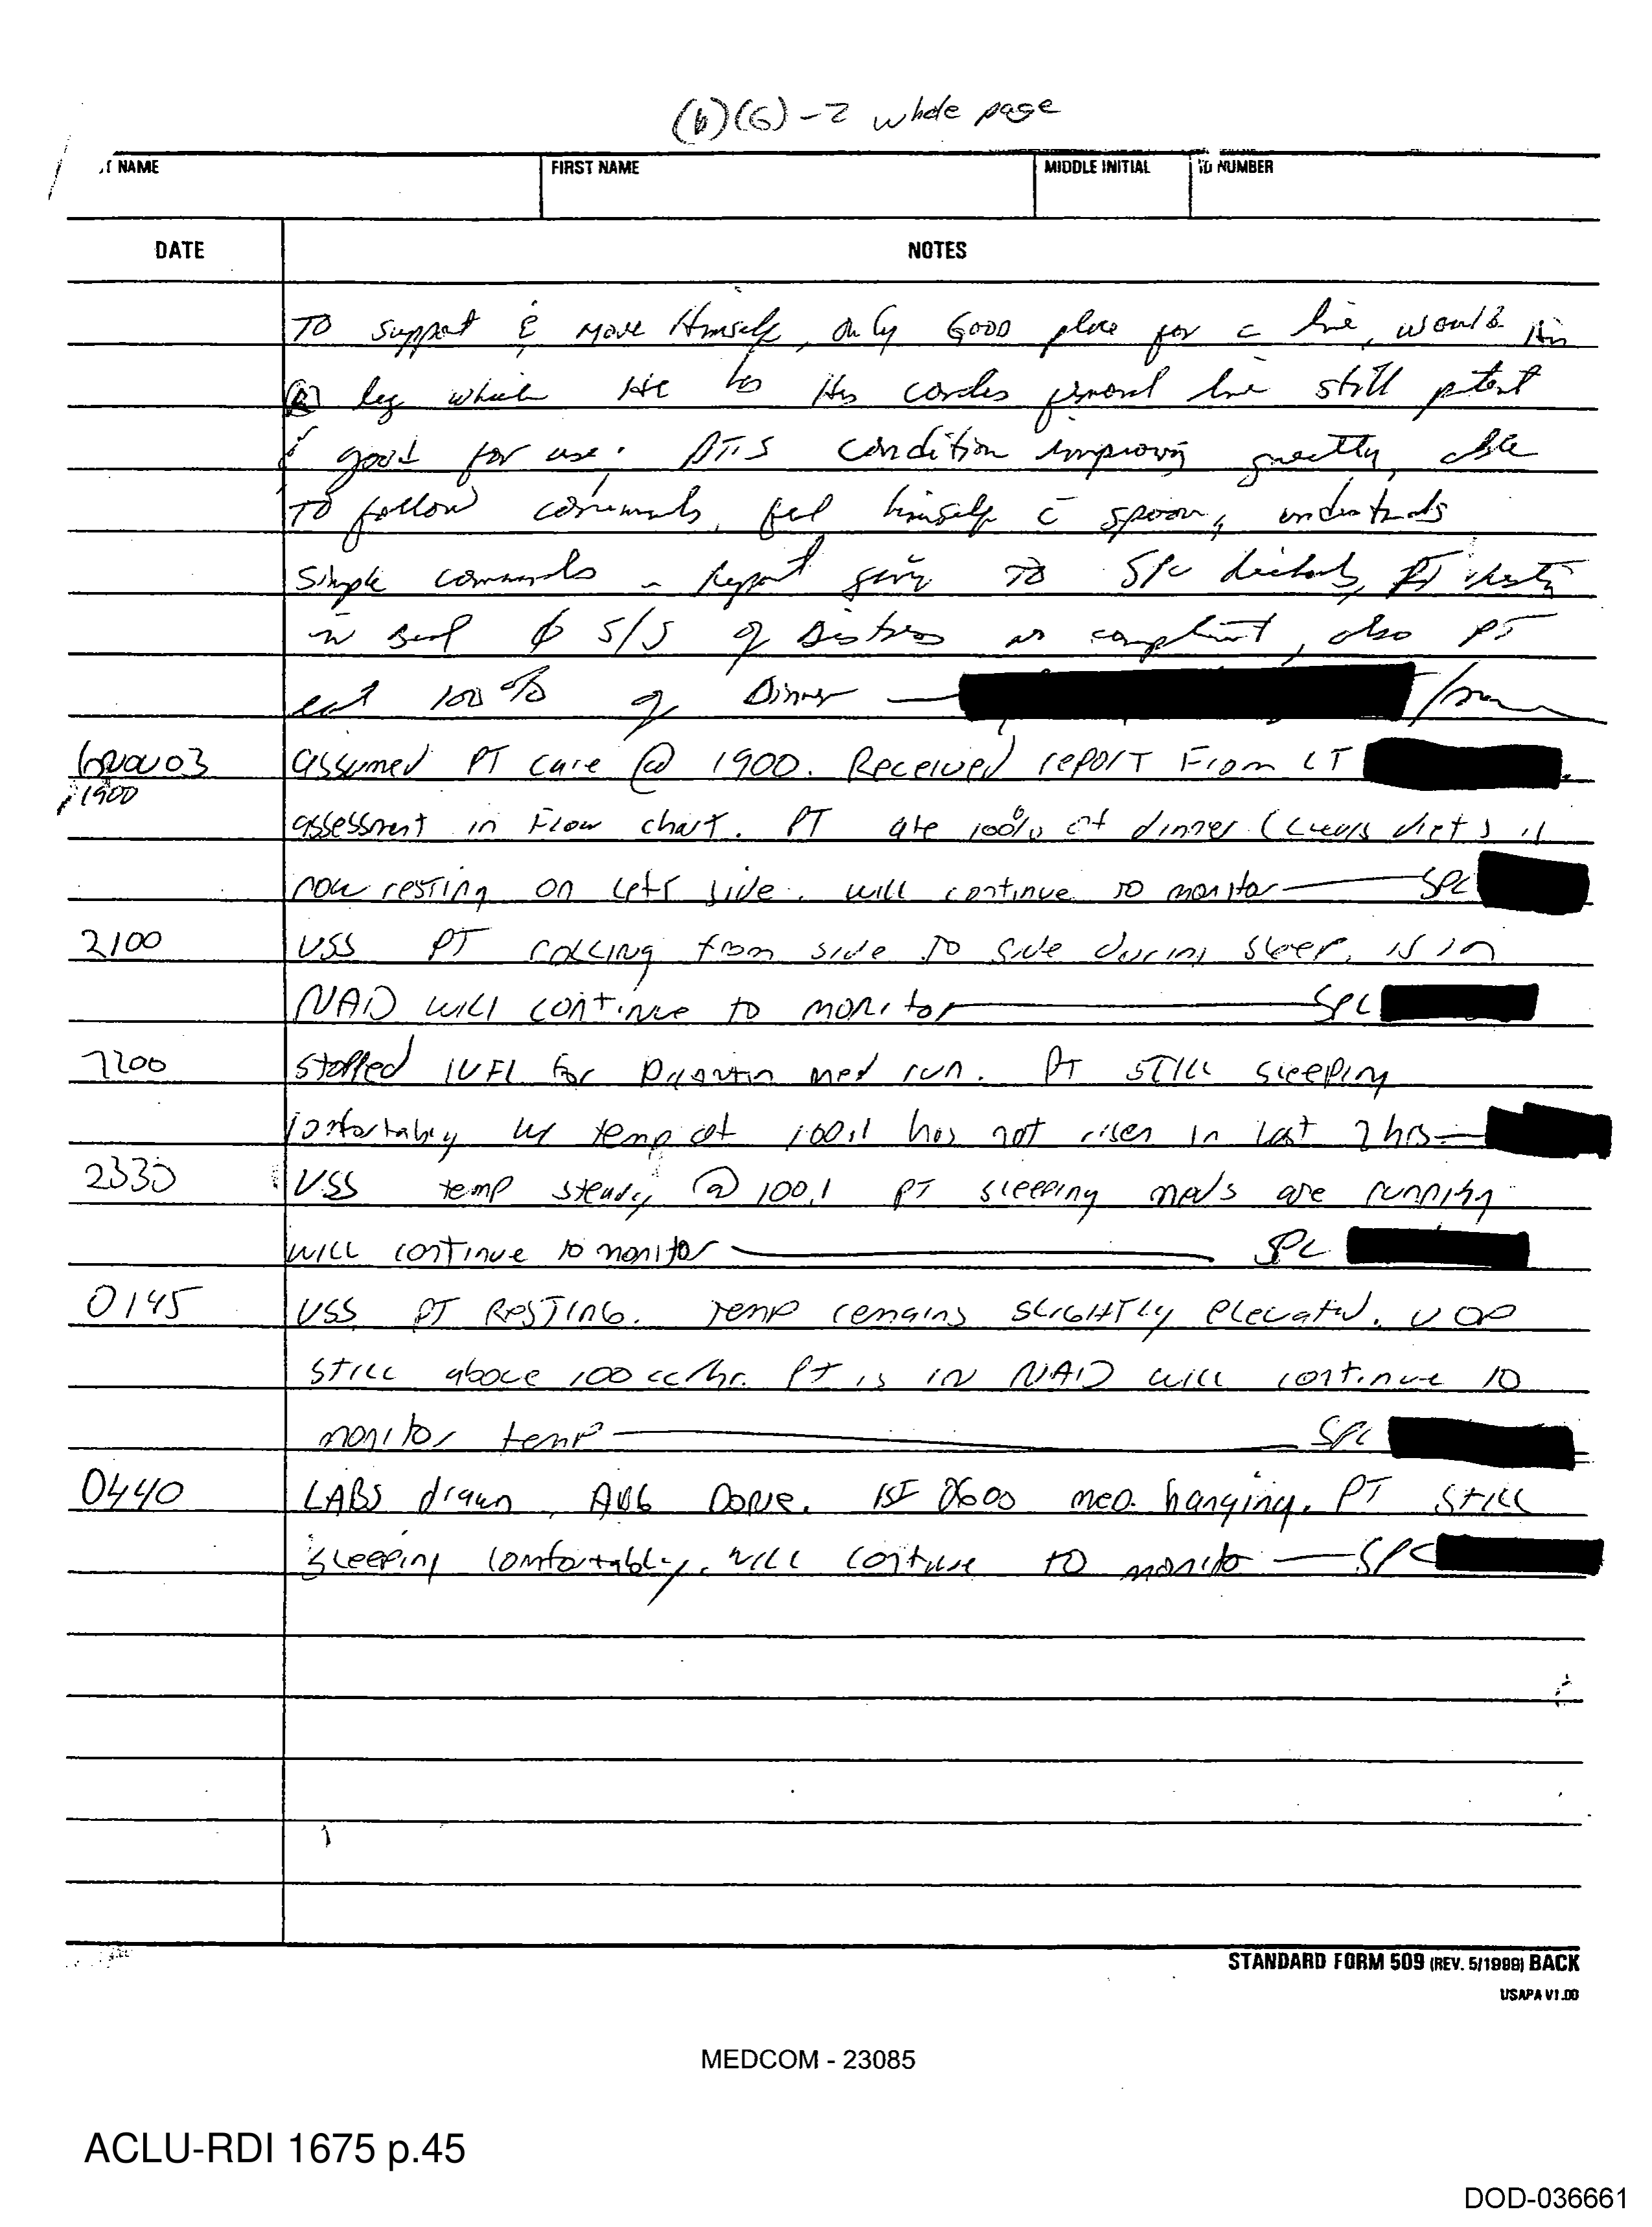 (b)(6)-2 whole page
T NAME FIRST NAME MIDDLE INITIAL ID NUMBER
DATE NOTES
TO support & move Himself, only GOOD place for a line, would
(R) leg which He has His cordis femoral line still patent
& good for use. PT'S condition improving greatly, able
TO follow commands, feed himself c̄ spoon, understands
simple commands - Report TO SPC PT
in bed ∅ S/S of Distress or complaint, also PT
eat 100% of Dinner
6NOV03 assumed PT care @ 1900. Received report From LT
1900
assessment in Flow chart. PT ate 100% of dinner ( diet)
now resting on left side. will continue to monitor SPC
2100 VSS PT rolling from side to side during sleep. is in
NAD will continue to monitor SPC
2200 stopped IVFL for med run. PT STILL sleeping
comfortably w/ temp at 100.1 has not risen in last 2 hrs
2330 VSS temp steady @ 100.1 PT sleeping meds are running
will continue to monitor SPC
0145 VSS PT RESTING. Temp remains slightly elevated. UOP
still above 100 cc/hr. Pt is IN NAD will continue to
monitor temp SPC
0440 LABS drawn, Done. 0600 med. hanging. PT still
sleeping comfortably. will continue to monitor SPC
STANDARD FORM 509 (REV. 5/1999) BACK
USAPA V1.00
MEDCOM - 23085
ACLU-RDI 1675 p.45
DOD-036661